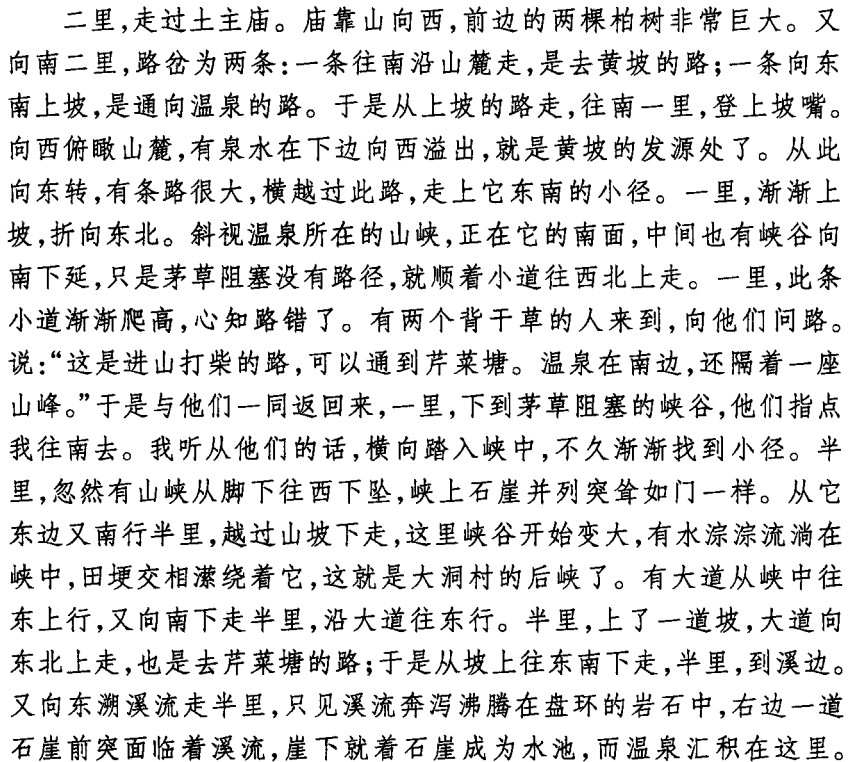 二里,走过土主庙。庙靠山向西,前边的两棵柏树非常巨大。又
向南二里,路岔为两条:一条往南沿山麓走,是去黄坡的路;一条向东
南上坡,是通向温泉的路。于是从上坡的路走,往南一里,登上坡嘴。
向西俯瞰山麓,有泉水在下边向西溢出,就是黄坡的发源处了。从此
向东转,有条路很大,横越过此路,走上它东南的小径。一里,渐渐上
坡,折向东北。斜视温泉所在的山峡,正在它的南面,中间也有峡谷向
南下延,只是茅草阻塞没有路径,就顺着小道往西北上走。一里,此条
小道渐渐爬高,心知路错了。有两个背干草的人来到,向他们问路。
说:“这是进山打柴的路,可以通到芹菜塘。温泉在南边,还隔着一座
山峰。”于是与他们一同返回来,一里,下到茅草阻塞的峡谷,他们指点
我往南去。我听从他们的话,横向踏入峡中,不久渐渐找到小径。半
里,忽然有山峡从脚下往西下坠,峡上石崖并列突耸如门一样。从它
东边又南行半里,越过山坡下走,这里峡谷开始变大,有水淙淙流淌在
峡中,田埂交相潆绕着它,这就是大洞村的后峡了。有大道从峡中往
东上行,又向南下走半里,沿大道往东行。半里,上了一道坡,大道向
东北上走,也是去芹菜塘的路;于是从坡上往东南下走,半里,到溪边。
又向东溯溪流走半里,只见溪流奔泻沸腾在盘环的岩石中,右边一道
石崖前突面临着溪流,崖下就着石崖成为水池,而温泉汇积在这里。